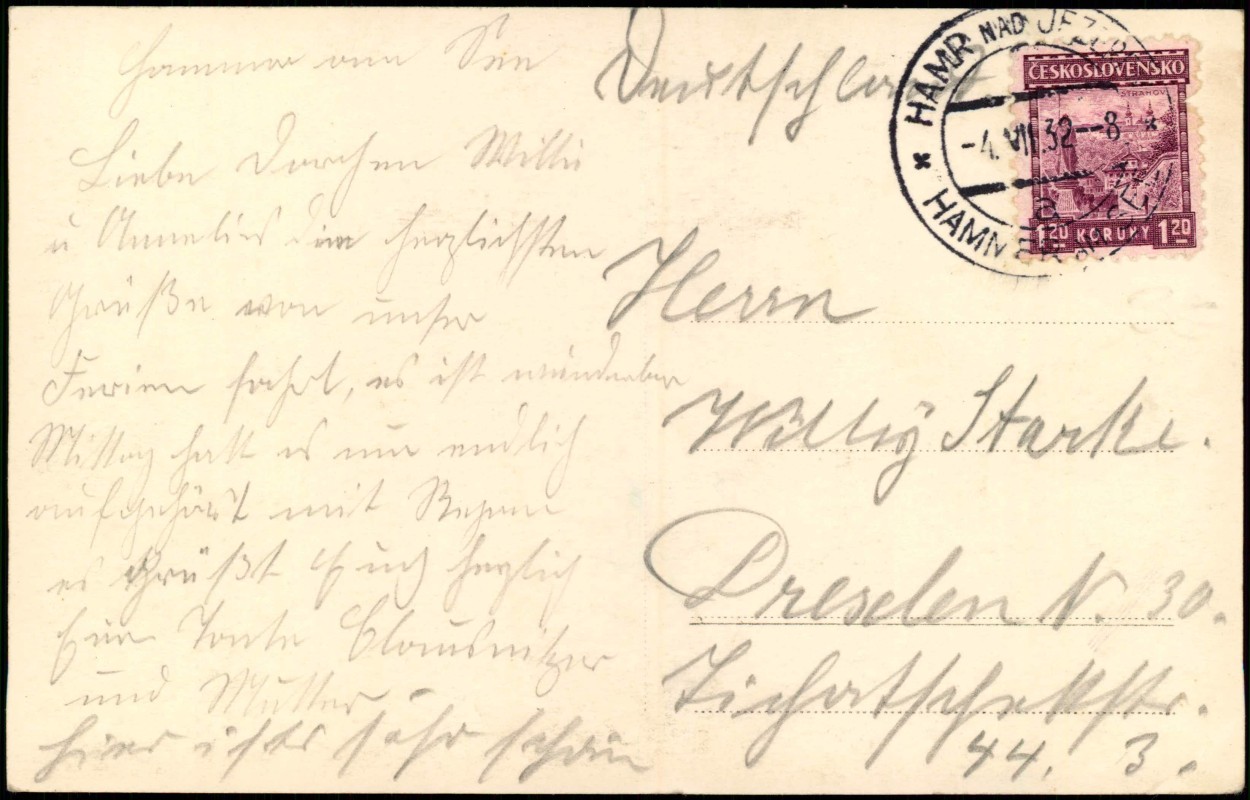 Hammer am See
Liebe Dorchen Willi
u Annelies die herzlichsten
Grüße von unser
Ferien fahrt, es ist wunderbar
Mittag hatt es nun endlich
aufgehört mit Regen
es Grüßt Euch herzlich
Eure Tante Clausnitzer
und Mutter
hier ists sehr schön
Deutschland.
HAMR NAD JEZEREM
-4.VII.32--8
a
HAMMER AM SEE
ČESKOSLOVENSKO
STRAHOV
1.20 KORUNY 1.20
Herrn
Willy Starke.
Dresden N. 30.
Tichatscheckstr.
44. 3.